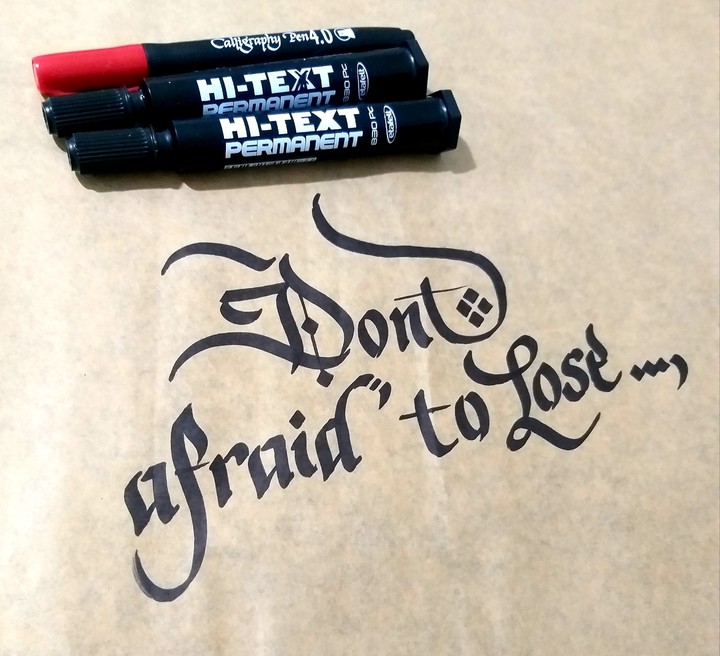 Calligraphy Pen 4.0
HI-TEXT
PERMANENT
830 PC
HI-TEXT
PERMANENT
830 PC
Dont
afraid" to Lose...,